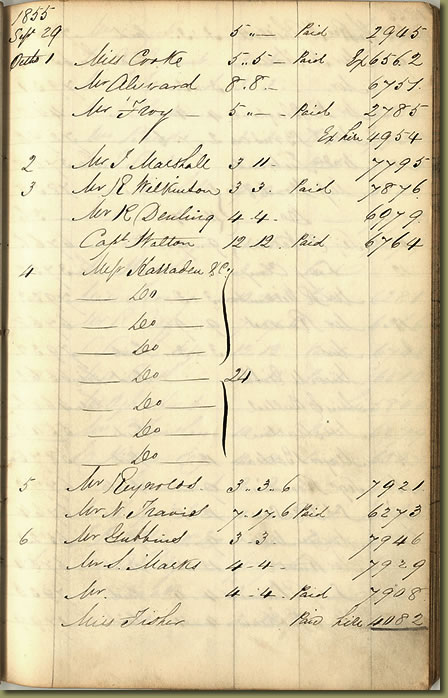 1855
Sept 29 5 „ – Paid 2945
Octbr 1 Miss Cooke 5 „ 5 – Paid Ex 656.2
Mr Alsward 8 . 8 . – 6751
Mr Froy 5 „ – Paid 2785
Ex hire 4954
2 Mr J Marshall 3 11 . 7795
3 Mr E Wilkinson 3 3 . Paid 7876
Mr R Denling 4 - 4 . 6979
Capt Walton 12 12 . Paid 6764
4 Mess Karraden & Co
Do
Do
Do
Do 24
Do
Do
Do
5 Mr Reynolds . 3 .. 3 .. 6 7921
Mr N Travis 7 . 17 . 6 Paid 6273
6 Mr Gubbins 3 - 3 . 7946
Mr S. Marks 4 - 4 . 7929
Mr 4 - 4 . Paid 7908
Miss Fisher Paid hire 4082